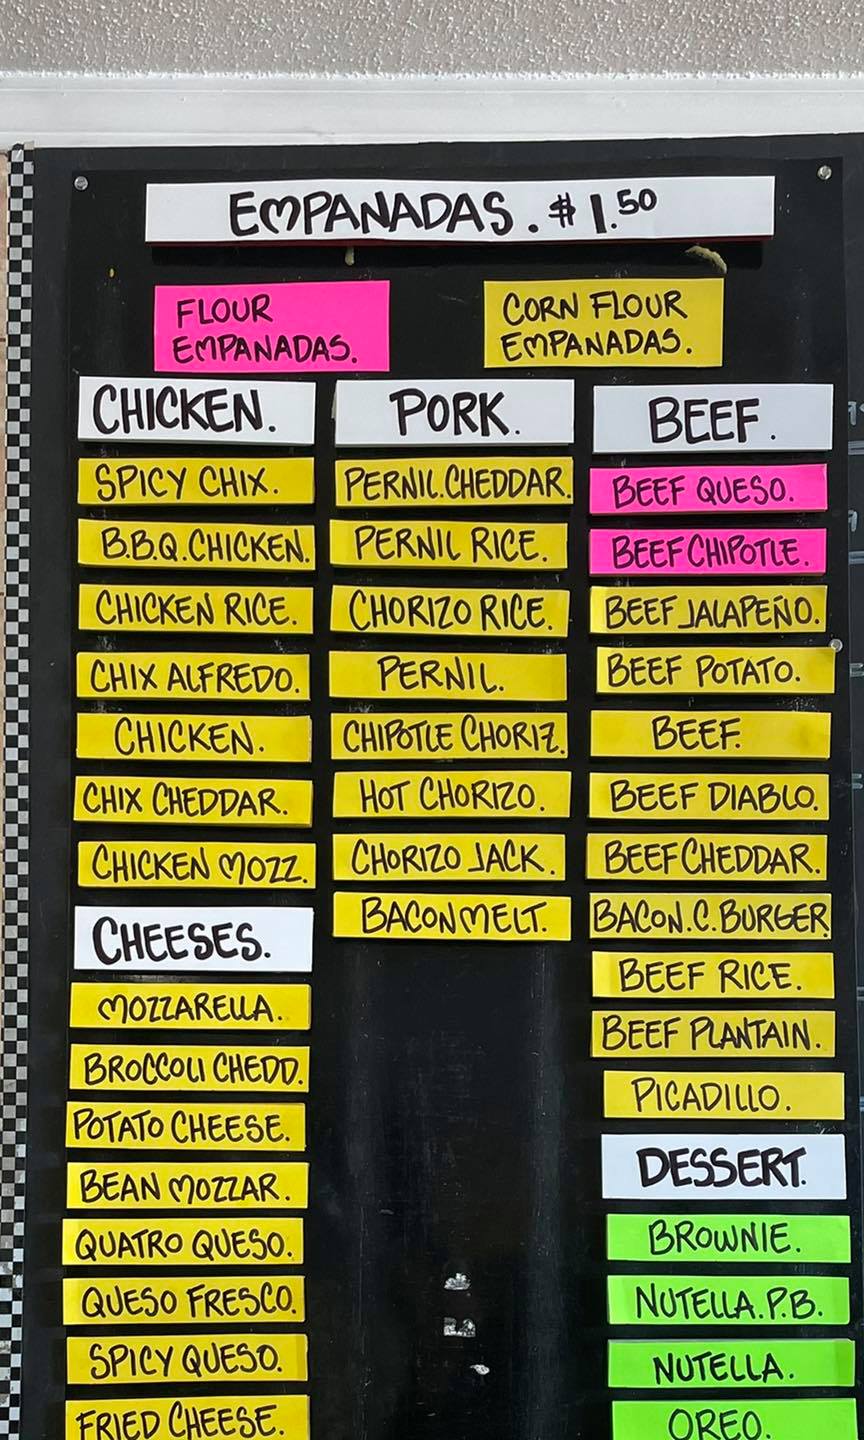 EMPANADAS. $1.50
FLOUR
EMPANADAS.
CORN FLOUR
EMPANADAS.
CHICKEN.
SPICY CHIX.
B.B.Q. CHICKEN.
CHICKEN RICE.
CHIX ALFREDO.
CHICKEN.
CHIX CHEDDAR.
CHICKEN MOZZ.
CHEESES.
MOZZARELLA.
BROCCOLI CHEDD.
POTATO CHEESE.
BEAN MOZZAR.
QUATRO QUESO.
QUESO FRESCO.
SPICY QUESO.
FRIED CHEESE.
PORK.
PERNIL.CHEDDAR.
PERNIL RICE.
CHORIZO RICE.
PERNIL.
CHIPOTLE CHORIZ.
HOT CHORIZO.
CHORIZO JACK.
BACON MELT.
BEEF.
BEEF QUESO.
BEEF CHIPOTLE.
BEEF JALAPEÑO.
BEEF POTATO.
BEEF.
BEEF DIABLO.
BEEF CHEDDAR.
BACON.C.BURGER
BEEF RICE.
BEEF PLANTAIN.
PICADILLO.
DESSERT.
BROWNIE.
NUTELLA.P.B.
NUTELLA.
OREO.